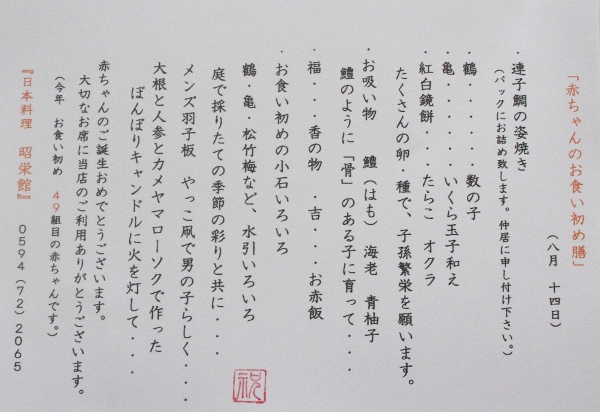 「赤ちゃんのお食い初め膳」
（八月　十四日）
・連子鯛の姿焼き
（パックにお詰め致します。仲居に申し付け下さい。）
・鶴・・・・・・数の子
・亀・・・・・いくら玉子和え
・紅白鏡餅・・・・たらこ　オクラ
たくさんの卵・種で、子孫繁栄を願います。
・お吸い物　鱧（はも）　海老　青柚子
鱧のように「骨」のある子に育って・・・
・福・・・香の物　・吉・・・お赤飯
・お食い初めの小石いろいろ
鶴・亀・松竹梅など、水引いろいろ
庭で採りたての季節の彩りと共に・・・
メンズ羽子板　やっこ凧で男の子らしく・・・
大根と人参とカメヤマローソクで作った
ぼんぼりキャンドルに火を灯して・・・
赤ちゃんのご誕生おめでとうございます。
大切なお席に当店のご利用ありがとうございます。
（今年　お食い初め　49組目の赤ちゃんです。）
『日本料理　昭栄館』　0594（72）2065
祝